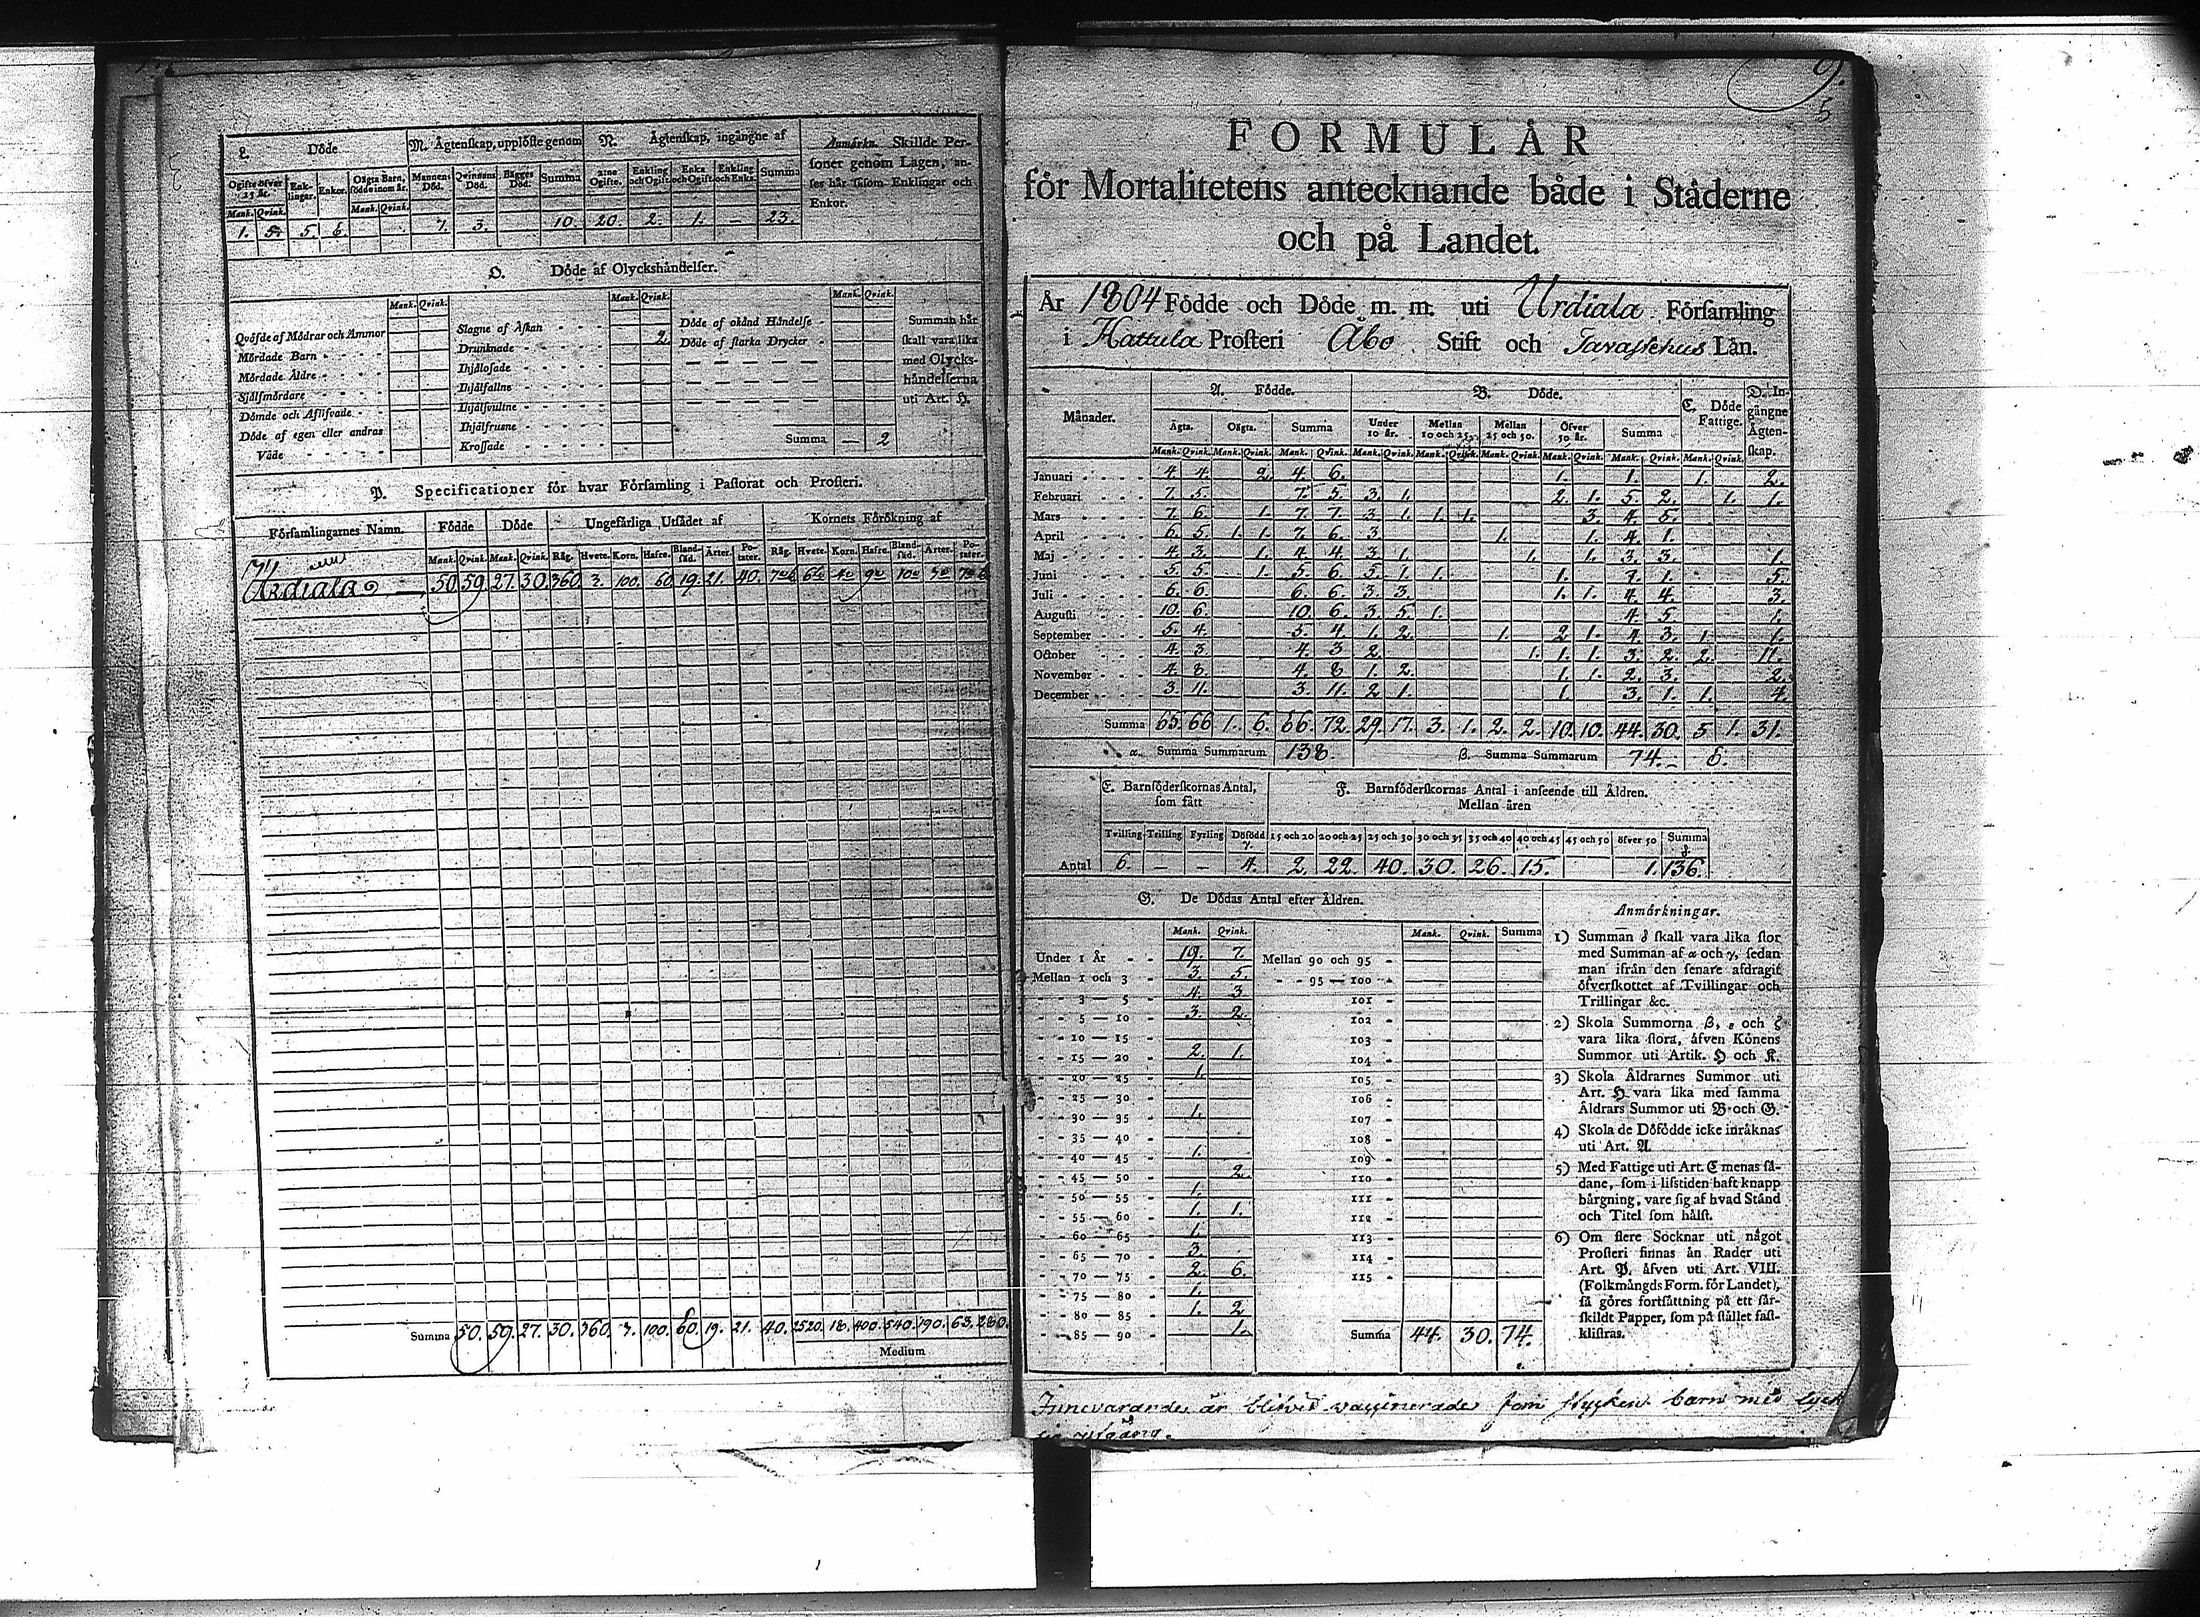 L. Döde.
M. Ägtenskap, uplöste genom
N. Ägtenskap, ingångne af
Anmärkn. Skillde Personer genom Lagen, anses här såsom Enklingar och Enkor.
Ogifte öfver 25 år. Enklingar. Enkor. Oägta Barn, födde inom år. Mannens Död. Qvinnans Död. Bägges Död. Summa 2:ne Ogifte. Enkling och Ogift. Enka och Ogift. Enkling och Enka. Summa
Mank. Qvink. Mank. Qvink.
1. 5. 5. 6. 7. 3. 10. 20. 2. 1. — 23.
O. Döde af Olyckshändelser.
Mank. Qvink. Mank. Qvink. Mank. Qvink.
Qväfde af Mödrar och Ammor
Mördade Barn
Mördade Äldre
Sjelfmördare
Dömde och Aflifvade
Döde af egen eller andras
Våde
Slagne af Åskan
Drunknade 2
Ihjälosade
Ihjälfallne
Ihjälsvultne
Ihjälfrusne
Krossade
Döde af okänd Händelse
Döde af starka Drycker
Summa — 2
Summan här
skall vara lika
med Olycks-
händelserna
uti Art. H.
P. Specificationer för hvar Församling i Pastorat och Prosteri.
Församlingarnes Namn. Födde Döde Ungefärliga Utsädet af Kornets Förökning af
Mank. Qvink. Mank. Qvink. Råg. Hvete. Korn. Hafre. Bland-säd. Ärter. Po-tater. Råg. Hvete. Korn. Hafre. Bland-säd. Ärter. Po-tater.
Urdiala 50. 59. 27. 30. 360. 3. 100. 60. 19. 21. 40.
Summa 50. 59. 27. 30. 360. 3. 100. 60. 19. 21. 40. 2520. 18. 400. 540. 190. 63. 280.
Medium
9.
5
FORMULÄR
för Mortalitetens antecknande både i Städerne
och på Landet.
År 1804 Födde och Döde m. m. uti Urdiala Församling
i Hattula Prosteri Åbo Stift och Tavastehus Län.
Månader. A. Födde. B. Döde. C. Döde Fattige. D. Ingångne Ägtenskap.
Ägta. Oägta. Summa Under 10 år. Mellan 10 och 25. Mellan 25 och 50. Öfver 50 år. Summa
Mank. Qvink. Mank. Qvink. Mank. Qvink. Mank. Qvink. Mank. Qvink. Mank. Qvink. Mank. Qvink. Mank. Qvink. Mank. Qvink.
Januari 4. 4. 2. 4. 6. 1. 1. 1. 2.
Februari 7. 5. 7. 5. 3. 1. 2. 1. 5. 2. 1. 1.
Mars 7. 6. 1. 7. 7. 3. 1. 1. 1. 3. 4. 5.
April 6. 5. 1. 1. 7. 6. 3. 1. 1. 4. 1.
Maj 4. 3. 1. 4. 4. 3. 1. 1. 1. 3. 3. 1.
Juni 5. 5. 1. 5. 6. 5. 1. 1. 1. 7. 1. 5.
Juli 6. 6. 6. 6. 3. 3. 1. 1. 4. 4. 3.
Augusti 10. 6. 10. 6. 3. 5. 1. 4. 5. 1.
September 5. 4. 5. 4. 1. 2. 1. 2. 1. 4. 3. 1. 1.
October 4. 3. 4. 3 2. 1. 1. 1. 3. 2. 2. 11.
November 4. 8. 4. 8 1. 2. 1. 1. 2. 3. 2.
December 3. 11. 3. 11. 2 1. 1. 3. 1. 1. 4.
Summa 65. 66 1. 6. 66. 72. 29. 17. 3. 1. 2. 2. 10. 10. 44. 30. 5 1. 31.
α. Summa Summarum 138. β. Summa Summarum 74. — 6.
E. Barnföderskornas Antal, som fått
F. Barnföderskornas Antal i anseende till Åldren.
Mellan åren
Tvilling Trilling Fyrling Dödfödd γ. 15 och 20 20 och 25 25 och 30 30 och 35 35 och 40 40 och 45 45 och 50 öfver 50 Summa δ
Antal 6. — — 4. 2. 22. 40. 30. 26. 15. 1. 136.
G. De Dödas Antal efter Åldren.
Mank. Qvink. Mank. Qvink. Summa
Under 1 År 19. 7. Mellan 90 och 95
Mellan 1 och 3 3. 5. 95 — 100
3 — 5 4. 3 101
5 — 10 3. 2. 102
10 — 15 103
15 — 20 2. 1. 104
20 — 25 1. 105
25 — 30 106
30 — 35 1. 107
35 — 40 108
40 — 45 1. 109
45 — 50 2. 110
50 — 55 1. 111
55 — 60 1. 1. 112
60 65 1. 113
65 — 70 3. 114
70 — 75 2. 6. 115
75 — 80 1.
80 — 85 1. 2
85 — 90 1. Summa 44. 30. 74.
Anmärkningar.
1) Summan δ skall vara lika stor
med Summan af α och γ, sedan
man ifrån den senare afdragit
öfverskottet af Tvillingar och
Trillingar &c.
2) Skola Summorna β, ε och ζ
vara lika stora, äfven Könens
Summor uti Artik. H och K.
3) Skola Åldrarnes Summor uti
Art. H vara lika med samma
Åldrars Summor uti B och G.
4) Skola de Dödfödde icke inräknas
uti Art. A.
5) Med Fattige uti Art. C menas så-
dane, som i lifstiden haft knapp
bärgning, vare sig af hvad Stånd
och Titel som hälst.
6) Om flere Socknar uti något
Prosteri finnas än Rader uti
Art. P, äfven uti Art. VIII.
(Folkmängds Form. för Landet),
så göres fortsättning på ett sär-
skildt Papper, som på stället fast-
klistras.
Innevarande år blifvit vaccinerade fem stycken barn med lyck
lig utgång.